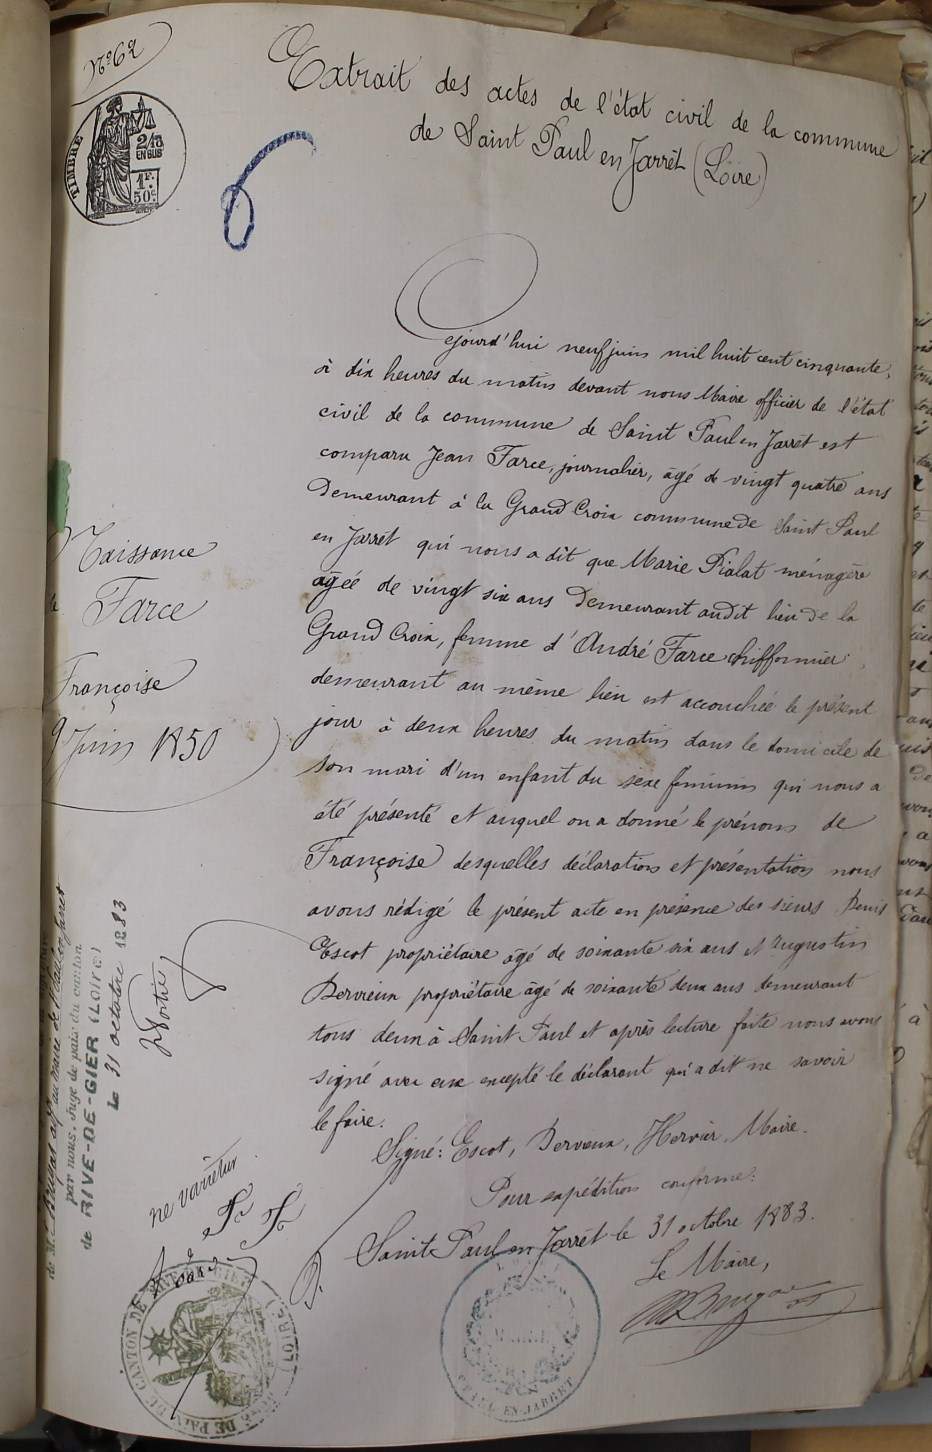 N° 62
TIMBRE
2/10
EN SUS
1F.
50c
Extrait des actes de l'état civil de la commune
de Saint Paul en Jarrêt (Loire)
Naissance
Farce
Françoise
9 Juin 1850
ejourd'hui neuf juin mil huit cent cinquante,
à dix heures du matin devant nous Maire officier de l'état
civil de la commune de Saint Paul en Jarrêt est
comparu Jean Farce, journalier, âgé de vingt quatre ans
demeurant à la Grand Croix commune de Saint Paul
en Jarrêt qui nous a dit que Marie Pialat ménagère
âgée de vingt six ans demeurant audit lieu de la
Grand Croix, femme d'André Farce chiffonnier
demeurant au même lieu est accouchée le présent
jour à deux heures du matin dans le domicile de
son mari d'un enfant du sexe féminin qui nous a
été présenté et auquel on a donné le prénom de
Françoise desquelles déclaration et présentation nous
avons rédigé le présent acte en présence des sieurs Denis
Escot propriétaire âgé de soixante six ans et Augustin
Dervieux propriétaire âgé de soixante deux ans demeurant
tous deux à Saint Paul et après lecture faite nous avons
signé avec eux excepté le déclarant qui a dit ne savoir
le faire.
Signé: Escot, Dervieux, Hervier, Maire.
Pour expédition conforme:
Saint-Paul en Jarrêt le 31 octobre 1883.
Le Maire,
de M.
par nous, Juge de paix du canton
de RIVE-DE-GIER (LOIRE)
le 31 octobre 1883
ne varietur
DE PAIX DU CANTON DE RIVE DE GIER (LOIRE)
MAIRIE
EN-JARRET